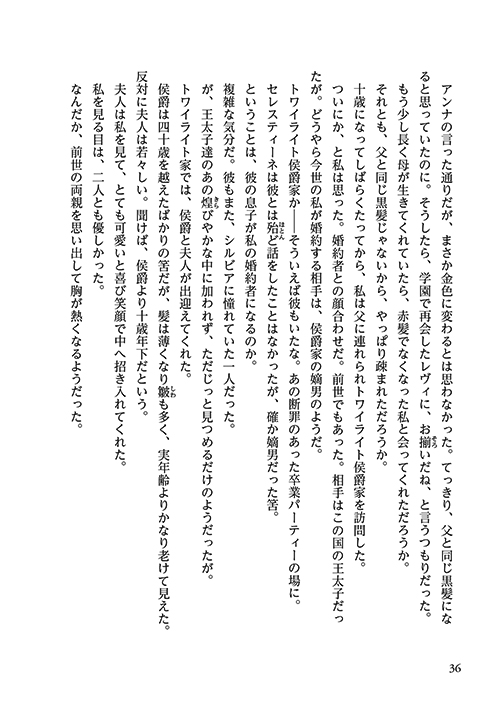 アンナの言った通りだが、まさか金色に変わるとは思わなかった。てっきり、父と同じ黒髪にな
ると思っていたのに。そうしたら、学園で再会したレヴィに、お揃いだね、と言うつもりだった。
もう少し長く母が生きてくれていたら、赤髪でなくなった私と会ってくれただろうか。
それとも、父と同じ黒髪じゃないから、やっぱり疎まれただろうか。
十歳になってしばらくたってから、私は父に連れられトワイライト侯爵家を訪問した。
ついにか、と私は思った。婚約者との顔合わせだ。前世でもあった。相手はこの国の王太子だっ
たが。どうやら今世の私が婚約する相手は、侯爵家の嫡男のようだ。
トワイライト侯爵家か――そういえば彼もいたな。あの断罪のあった卒業パーティーの場に。
セレスティーネは彼とは殆ど話をしたことはなかったが、確か嫡男だった筈。
ということは、彼の息子が私の婚約者になるのか。
複雑な気分だ。彼もまた、シルビアに憧れていた一人だった。
が、王太子達のあの煌びやかな中に加われず、ただじっと見つめるだけのようだったが。
トワイライト家では、侯爵と夫人が出迎えてくれた。
侯爵は四十歳を越えたばかりの筈だが、髪は薄くなり皺も多く、実年齢よりかなり老けて見えた。
反対に夫人は若々しい。聞けば、侯爵より十歳年下だという。
夫人は私を見て、とても可愛いと喜び笑顔で中へ招き入れてくれた。
私を見る目は、二人とも優しかった。
なんだか、前世の両親を思い出して胸が熱くなるようだった。
36